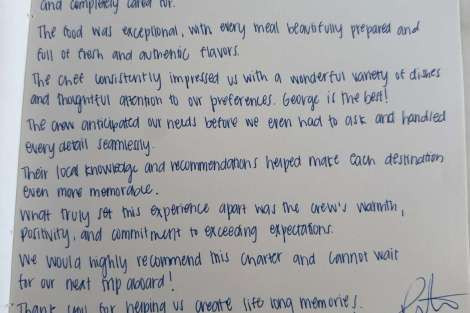 and completely cared for.
The food was exceptional, with every meal beautifully prepared and
full of fresh and authentic flavors.
The chef consistently impressed us with a wonderful variety of dishes
and thoughtful attention to our preferences. George is the best!
The crew anticipated our needs before we even had to ask and handled
every detail seamlessly.
Their local knowledge and recommendations helped make each destination
even more memorable.
What truly set this experience apart was the crew's warmth,
positivity, and commitment to exceeding expectations.
We would highly recommend this charter and cannot wait
for our next trip aboard!
Thank you for helping us create life long memories.